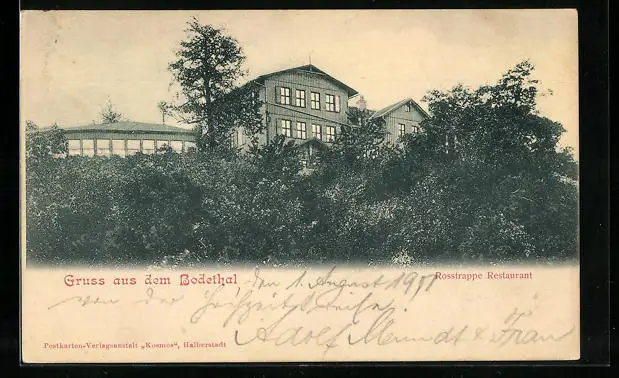 Gruss aus dem Bodethal
Rosstrappe Restaurant
den 1. August
von der Hochzeitsreise
Adolf Mundt & Frau
Postkarten-Verlagsanstalt „Kosmos“, Halberstadt